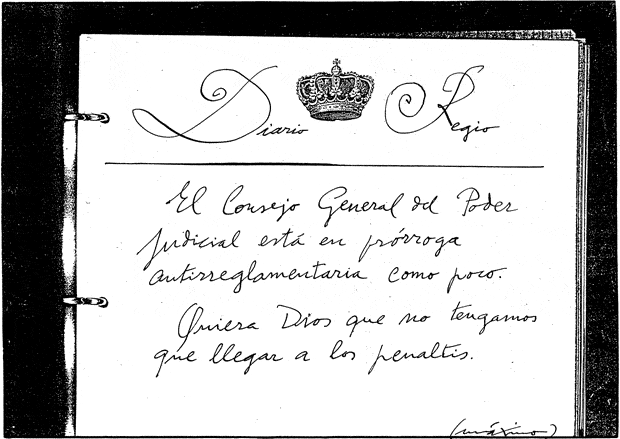 Diario Regio
El Consejo General del Poder
Judicial está en prórroga
antirreglamentaria como poco.
Quiera Dios que no tengamos
que llegar a los penaltis.
(máximo)